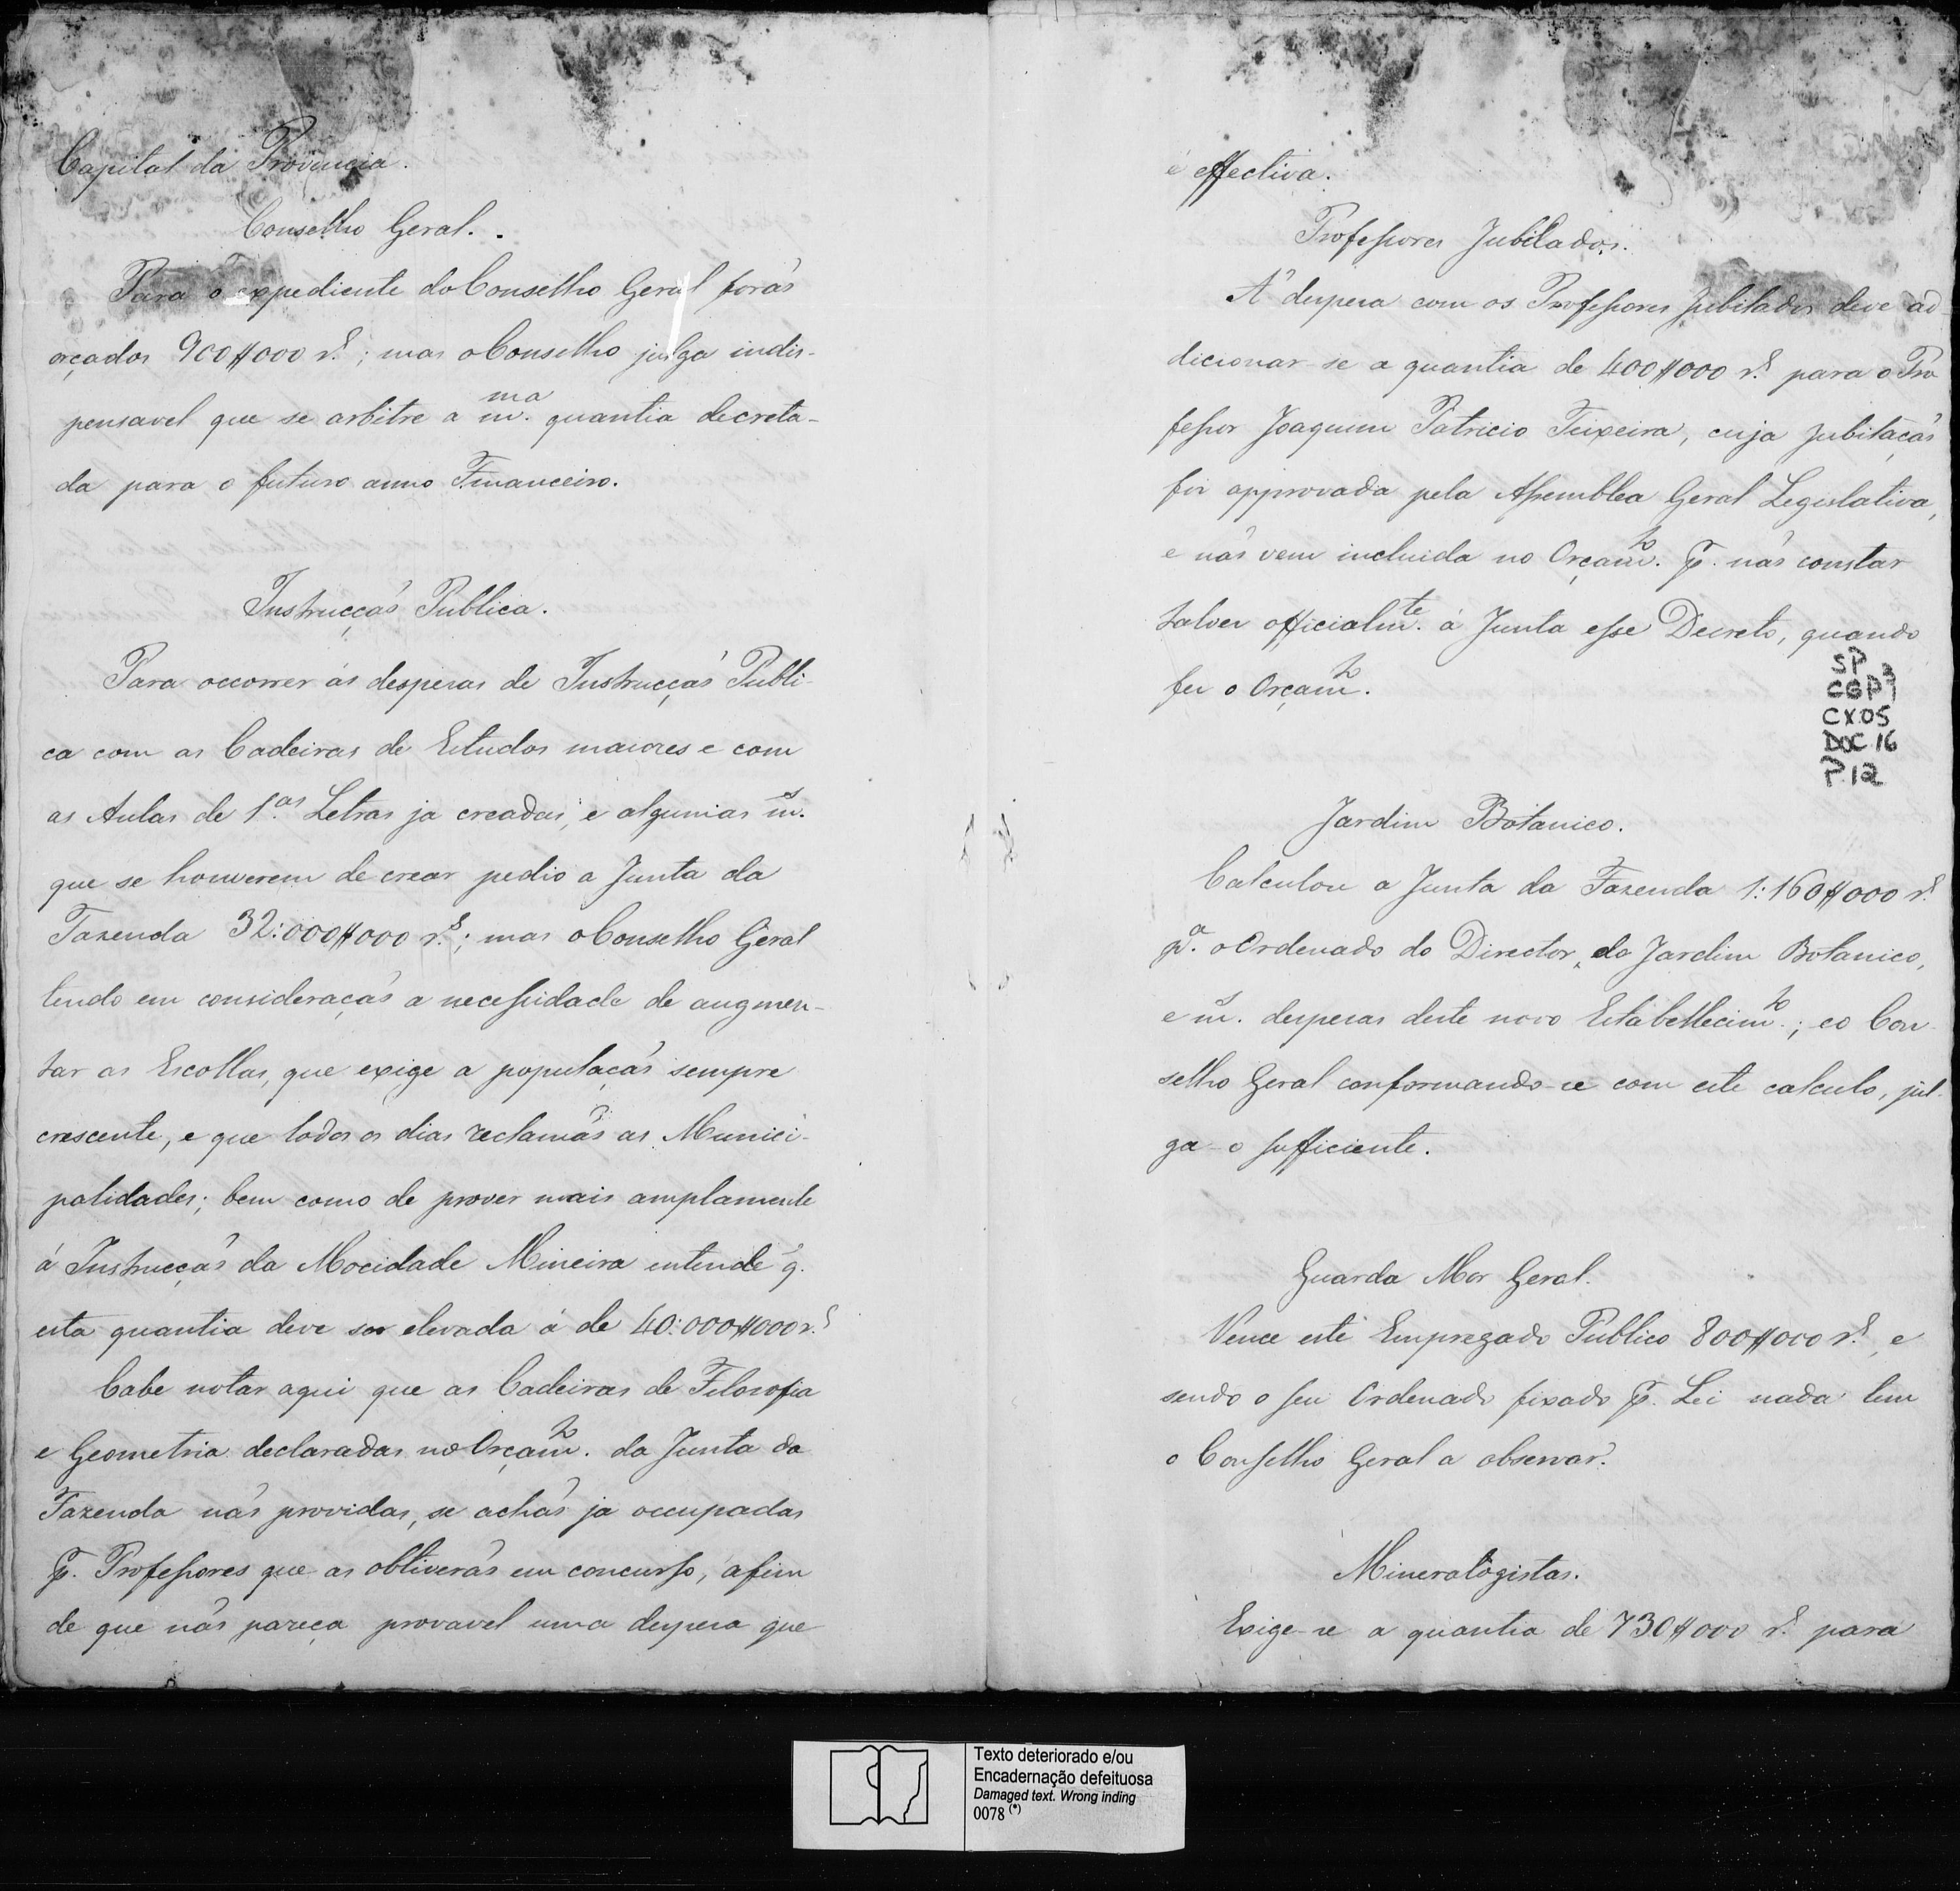 Capital da Provincia.
Conselho Geral.
Para o expediente do Conselho Geral forão
orçados 900$000 r.s; mas o Conselho julga indis-
pensavel que se arbitre a m.ma quantia decreta-
da para o futuro anno Financeiro.
Instrucção Publica.
Para occorrer ás despesas de Instrucção Publi-
ca com as Cadeiras de Estudos maiores e com
as Aulas de 1.as Letras ja creadas, e algumas m.s
que se houverem de crear pedio a Junta da
Fazenda 32:000$000 r.s; mas o Conselho Geral
tendo em consideração a necessidade de augmen-
tar as Escollas, que exige a população sempre
crescente, e que todos os dias reclamão as Munici-
palidades; bem como de prover mais amplamente
á Instrucção da Mocidade Mineira entende q.
esta quantia deve ser elevada á de 40:000$000 r.s
Cabe notar aqui que as Cadeiras de Filosofia
e Geometria declaradas no Orçam.to da Junta da
Fazenda não providas, se achão ja occupadas
p. Professores que as obtiverão em concurso, afim
de que não pareça provavel uma despesa que
é effectiva.
Professores Jubilados.
A' despesa com os Professores Jubilados deve ad-
dicionar-se a quantia de 400$000 r.s para o Pro
fessor Joaquim Patricio Teixeira, cuja Jubilação
foi approvada pela Assemblea Geral Legislativa,
e não vem incluida no Orçam.to p. não constar
talves officialm.te á Junta esse Decreto, quando
fes o Orçam.to.
SP
CGP 1
CX.05
DOC.16
P.12
Jardim Botanico.
Calculou a Junta da Fazenda 1:160$000 r.s
p.a o Ordenado do Director, do Jardim Botanico,
e m.s despesas deste novo Estabellecim.to; e o Con-
selho Geral conformando-se com este calculo, jul-
ga-o sufficiente.
Guarda Mor Geral.
Vence este Empregado Publico 800$000 r.s, e
sendo o seu Ordenado fixado p. Lei nada tem
o Conselho Geral a observar.
Mineralogistas.
Exige-se a quantia de 730$000 r.s para
Texto deteriorado e/ou
Encadernação defeituosa
Damaged text. Wrong inding
0078 (*)